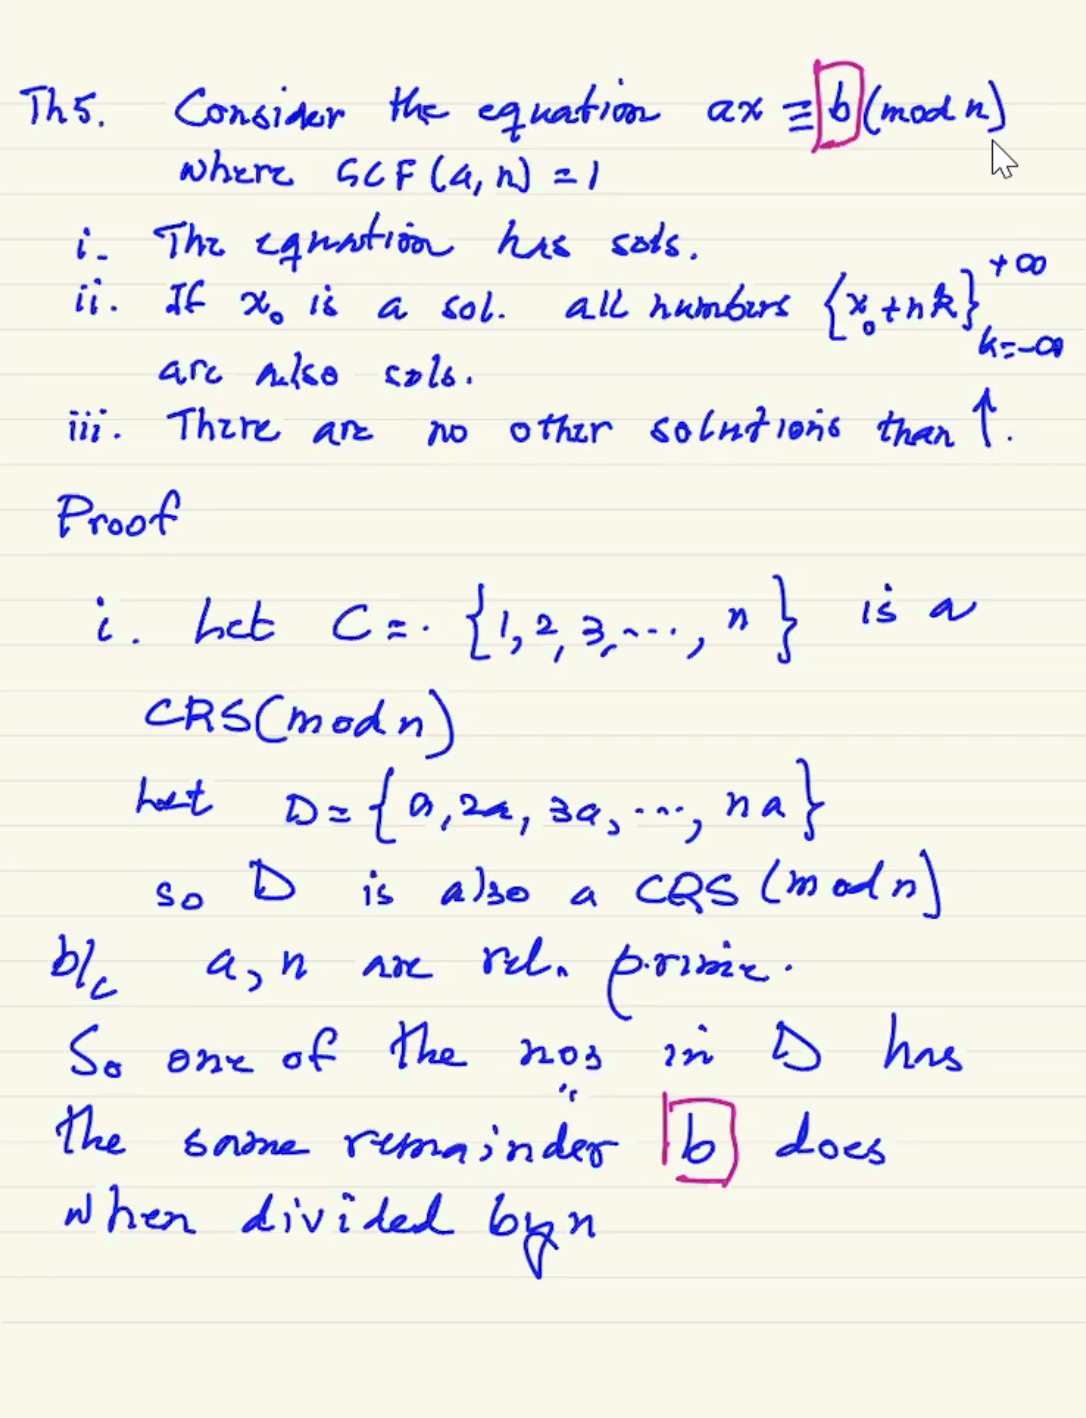 Th5. Consider the equation ax ≡ b (mod n)
where GCF (a, n) = 1
i. The equation has sols.
ii. If x₀ is a sol. all numbers {x₀+nk}+∞ k=-∞
are also sols.
iii. There are no other solutions than ↑.
Proof
i. Let C = {1, 2, 3, ..., n} is a
CRS (mod n)
Let D = {a, 2a, 3a, ..., na}
so D is also a CRS (mod n)
b/c a, n are rel. prime.
So one of the nos in D has
the same remainder b does
when divided by n